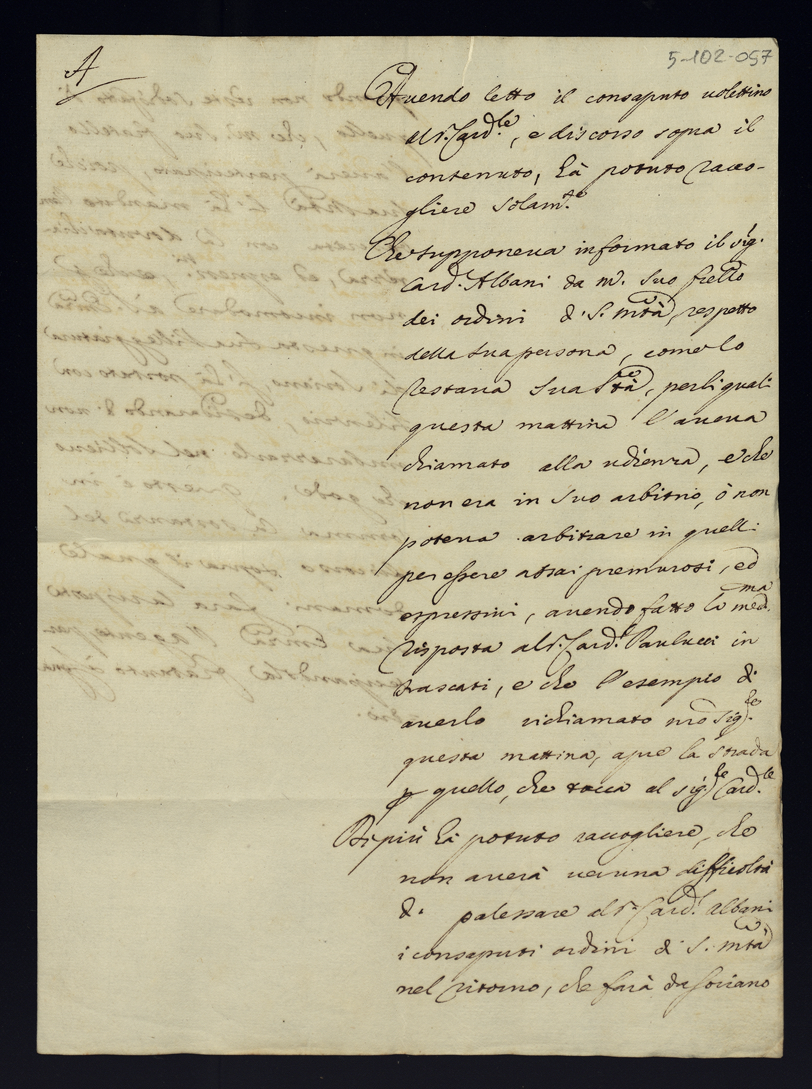 5-102-057
A
Avendo letto il consaputo volettino
al Sr. Card.le, e discorso sopra il
contenuto, hà potuto racco-
gliere solam.te
Che supponeva informato il Sig.
Card. Albani da M. suo frello
dei ordini di S. Mtà, respetto
della sua persona, come lo
restava Sua Stà, per li quali
questa mattina l'aveva
chiamato alla udienza, e che
non era in suo arbitrio, ò non
poteva arbitrare in quelli
per essere assai premurosi, ed
espressivi, avendo fatto la med.ma
risposta al Sr. Card.l Paulucci in
frascati, e che l'esempio di
averlo richiamato nro Sig.re
questa mattina, apre la strada
p quello, che tocca al Sig.re Card.le
Di più hà potuto raccogliere, che
non averà veruna difficoltà
di palessare al Sr. Card.l Albani
i consaputi ordini di S. Mtà
nel ritorno, che farà da Soriano